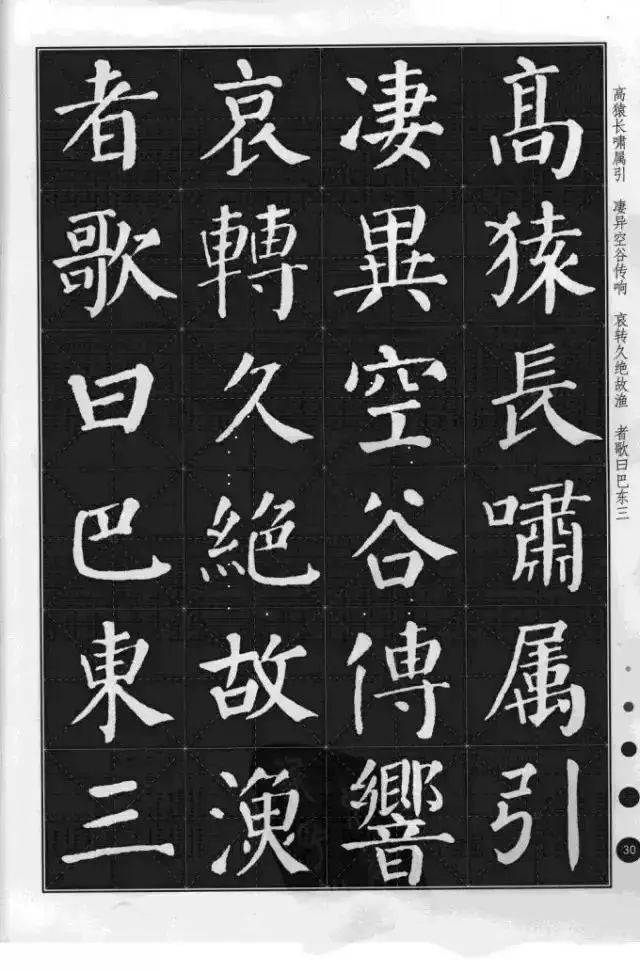 高猿長嘯属引
凄異空谷傳響
哀轉久絕故漁
者歌曰巴東三
高猿长啸属引 凄异空谷传响 哀转久绝故渔 者歌曰巴东三
30